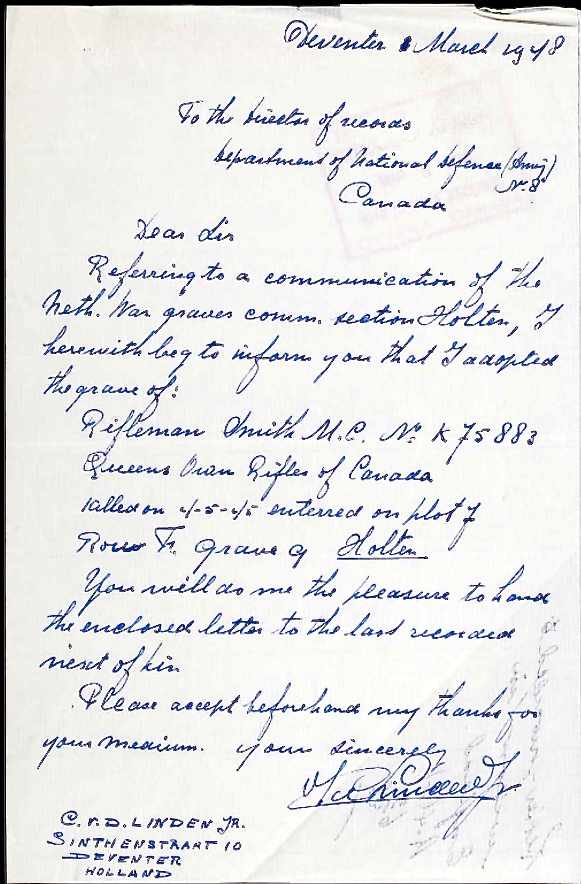 Deventer March 1948
To the Director of records
Department of National Defence (Army)
Canada
Dear Sir
Referring to a communication of the
Neth. War graves comm. section Holten, I
herewith beg to inform you that I adopted
the grave of:
Rifleman Smith M.C. No K 75883
Queens Own Rifles of Canada
killed on 4-5-45 enterred on plot
Row grave 9 Holten
You will do me the pleasure to hand
the enclosed letter to the last recorded
next of kin
Please accept beforehand my thanks for
your medium. yours sincerely
C. V. D. LINDEN JR.
SINTHENSTRAAT 10
DEVENTER
HOLLAND